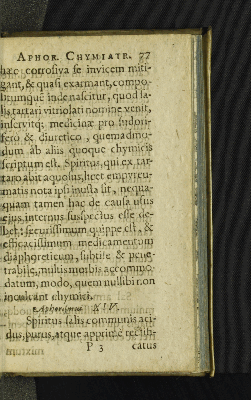 APHOR. CHYMIATR. 77
hæc corrosiva se invicem miti-
gant, & quasi exarmant, compo-
situmque inde nascitur, quod sa-
lis tartari vitriolati nomine venit,
inservitq; medicinæ pro sudori-
fero & diuretico, quemadmo-
dum ab aliis quoque chymicis
scriptum est. Spiritus, qui ex tar-
taro abit aquosus, licet empyreu-
matis nota ipsi inusta sit, nequa-
quam tamen hac de causa usus
ejus internus suspectus esse de-
bet: securissimum quippe est, &
efficacissimum medicamentum
diaphoreticum, subtile & pene-
trabile, multis morbis accommo-
datum, modo, quem nullibi non
inculcant chymici.
Aphorismus XIV.
Spiritus salis communis aci-
dus, purus, atque apprime rectifi-
P 3 catus